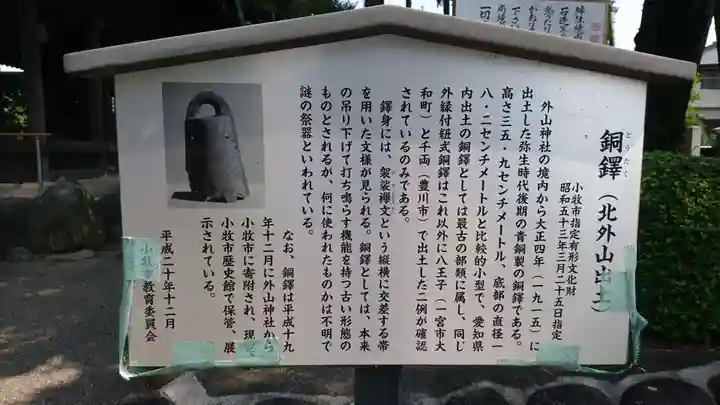 銅鐸（北外山出土）
どうたく
小牧市指定有形文化財
昭和五十三年三月二十五日指定
外山神社の境内から大正四年（一九一五）に
出土した弥生時代後期の青銅製の銅鐸である。
高さ三五・九センチメートル、底部の直径一
八・二センチメートルと比較的小型で、愛知県
内出土の銅鐸としては最古の部類に属し、同じ
外縁付紐式銅鐸はこれ以外に八王子（一宮市大
和町）と千両（豊川市）で出土した二例が確認
されているのみである。
鐸身には、袈裟襷文という縦横に交差する帯
を用いた文様が見られる。銅鐸としては、本来
の吊り下げて打ち鳴らす機能を持つ古い形態の
ものとされるが、何に使われたものかは不明で
謎の祭器といわれている。
なお、銅鐸は平成十九
年十二月に外山神社から
小牧市に寄附され、現在
小牧市歴史館で保管、展
示されている。
平成二十年十二月
小牧市教育委員会